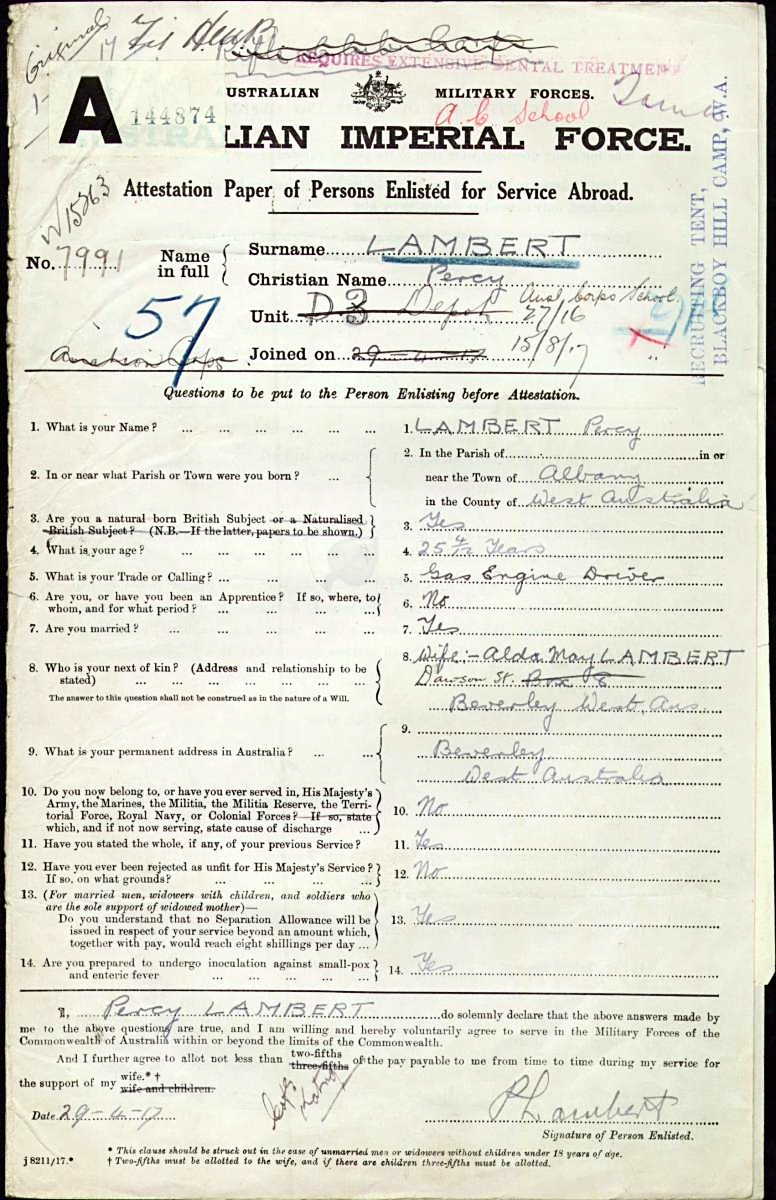 Original
REQUIRES EXTENSIVE DENTAL TREATMENT
A 144874
USTRALIAN MILITARY FORCES.
A.C School
LIAN IMPERIAL FORCE.
Attestation Paper of Persons Enlisted for Service Abroad.
RECRUITING TENT,
BLACKBOY HILL CAMP, W.A.
No. 7991 Name in full { Surname LAMBERT
Christian Name Percy
Unit D3 Depot 27/16
57
Joined on 29-4-17 15/8/17 "
Questions to be put to the Person Enlisting before Attestation.
1. What is your Name? ... ... ... ... ... ... 1. LAMBERT Percy
2. In or near what Parish or Town were you born? ... 2. In the Parish of in or
near the Town of Albany
in the County of West Australia
3. Are you a natural born British Subject or a Naturalised
British Subject? (N.B.—If the latter, papers to be shown.) 3. Yes
4. What is your age? ... ... ... ... ... 4. 25 4/12 Years
5. What is your Trade or Calling? ... ... ... ... 5. Gas Engine Driver
6. Are you, or have you been an Apprentice? If so, where, to
whom, and for what period? ... ... ... ... 6. No
7. Are you married? ... ... ... ... ... 7. Yes
8. Who is your next of kin? (Address and relationship to be
stated) ... ... ... ... ... ... ...
The answer to this question shall not be construed as in the nature of a Will.
8. Wife:- Alda May LAMBERT
Dawson St. Box 8
Beverley West. Aus
9. What is your permanent address in Australia? ... ... 9.
Beverley
West Australia
10. Do you now belong to, or have you ever served in, His Majesty's
Army, the Marines, the Militia, the Militia Reserve, the Terri-
torial Force, Royal Navy, or Colonial Forces? If so, state
which, and if not now serving, state cause of discharge ... 10. No
11. Have you stated the whole, if any, of your previous Service? 11. Yes
12. Have you ever been rejected as unfit for His Majesty's Service?
If so, on what grounds? ... ... ... ... 12. No
13. (For married men, widowers with children, and soldiers who
are the sole support of widowed mother)—
Do you understand that no Separation Allowance will be
issued in respect of your service beyond an amount which,
together with pay, would reach eight shillings per day ... 13. Yes
14. Are you prepared to undergo inoculation against small-pox
and enteric fever ... ... ... ... ... 14. Yes
I, Percy LAMBERT do solemnly declare that the above answers made by
me to the above questions are true, and I am willing and hereby voluntarily agree to serve in the Military Forces of the
Commonwealth of Australia within or beyond the limits of the Commonwealth.
And I further agree to allot not less than two-fifths three-fifths of the pay payable to me from time to time during my service for
the support of my wife.* † wife and children.
Date 29-4-17 PLambert
Signature of Person Enlisted.
j 8211/17.*
* This clause should be struck out in the case of unmarried men or widowers without children under 18 years of age.
† Two-fifths must be allotted to the wife, and if there are children three-fifths must be allotted.